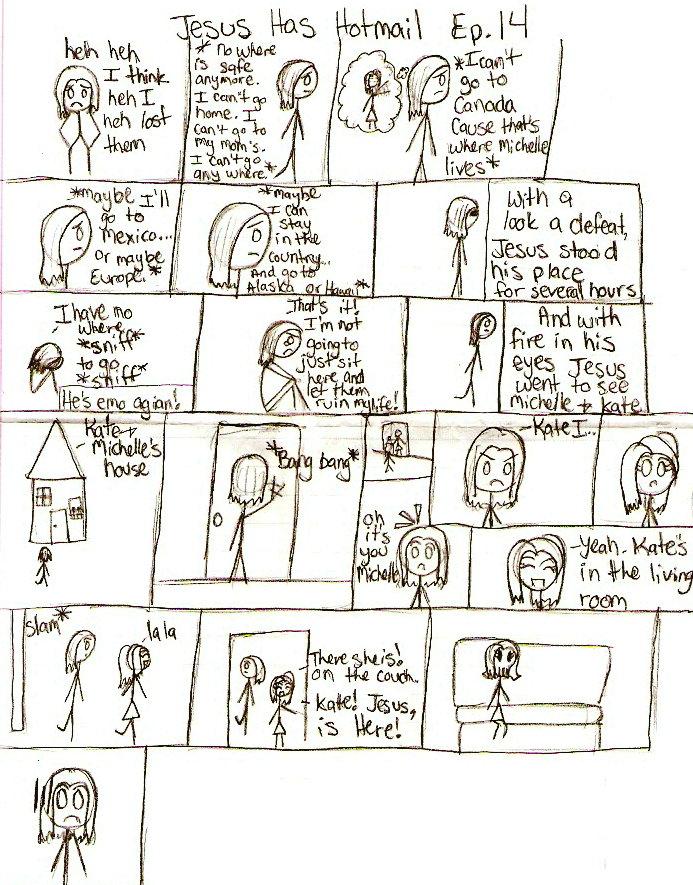 Jesus Has Hotmail Ep. 14
heh heh
I think
heh I
heh lost
them
* no where
is safe
anymore.
I can't go
home. I
can't go to
my mom's.
I can't go
any where.*
*I can't
go to
Canada
Cause that's
where Michelle
lives*
*maybe I'll
go to
mexico...
Or maybe
Europe.*
*maybe
I can
stay
in the
country..
And go to
Alaska or Hawaii*
with a
look a defeat,
Jesus stood
his place
for several hours
I have no
where
*sniff*
to go
*sniff*
He's emo agian!
That's it!
I'm not
going to
just sit
here and
let them
ruin my life!
And with
fire in his
eyes Jesus
went to see
michelle + kate
Kate +
Michelle's
house
*Bang bang*
Kate I...
oh
it's
you
Michelle
Yeah. Kate's
in the living
room
Slam*
la la
There she is!
on the couch..
Kate! Jesus,
is Here!